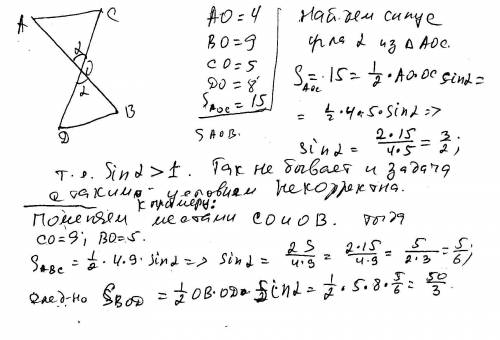 A
C
O
α
D
B
AO = 4
BO = 9
CO = 5
DO = 8
S_AOC = 15
S_AOB.
Найдем синус
угла α из ΔAOC.
S_AOC = 15 = 1/2 · AO · OC sin α =
= 1/2 · 4 · 5 · sin α =>
sin α = 2·15/4·5 = 3/2;
т.е. sin α > 1. Так не бывает и задача
с таким условием некорректна.
к примеру:
Поменяем местами CO и OB. тогда
CO = 9; BO = 5.
S_ABC = 1/2 · 4 · 9 · sin α => sin α = 2S/4·9 = 2·15/4·9 = 5/2·3 = 5/6;
След-но S_BOD = 1/2 OB · OD · sin α = 1/2 · 5 · 8 · 5/6 = 50/3.